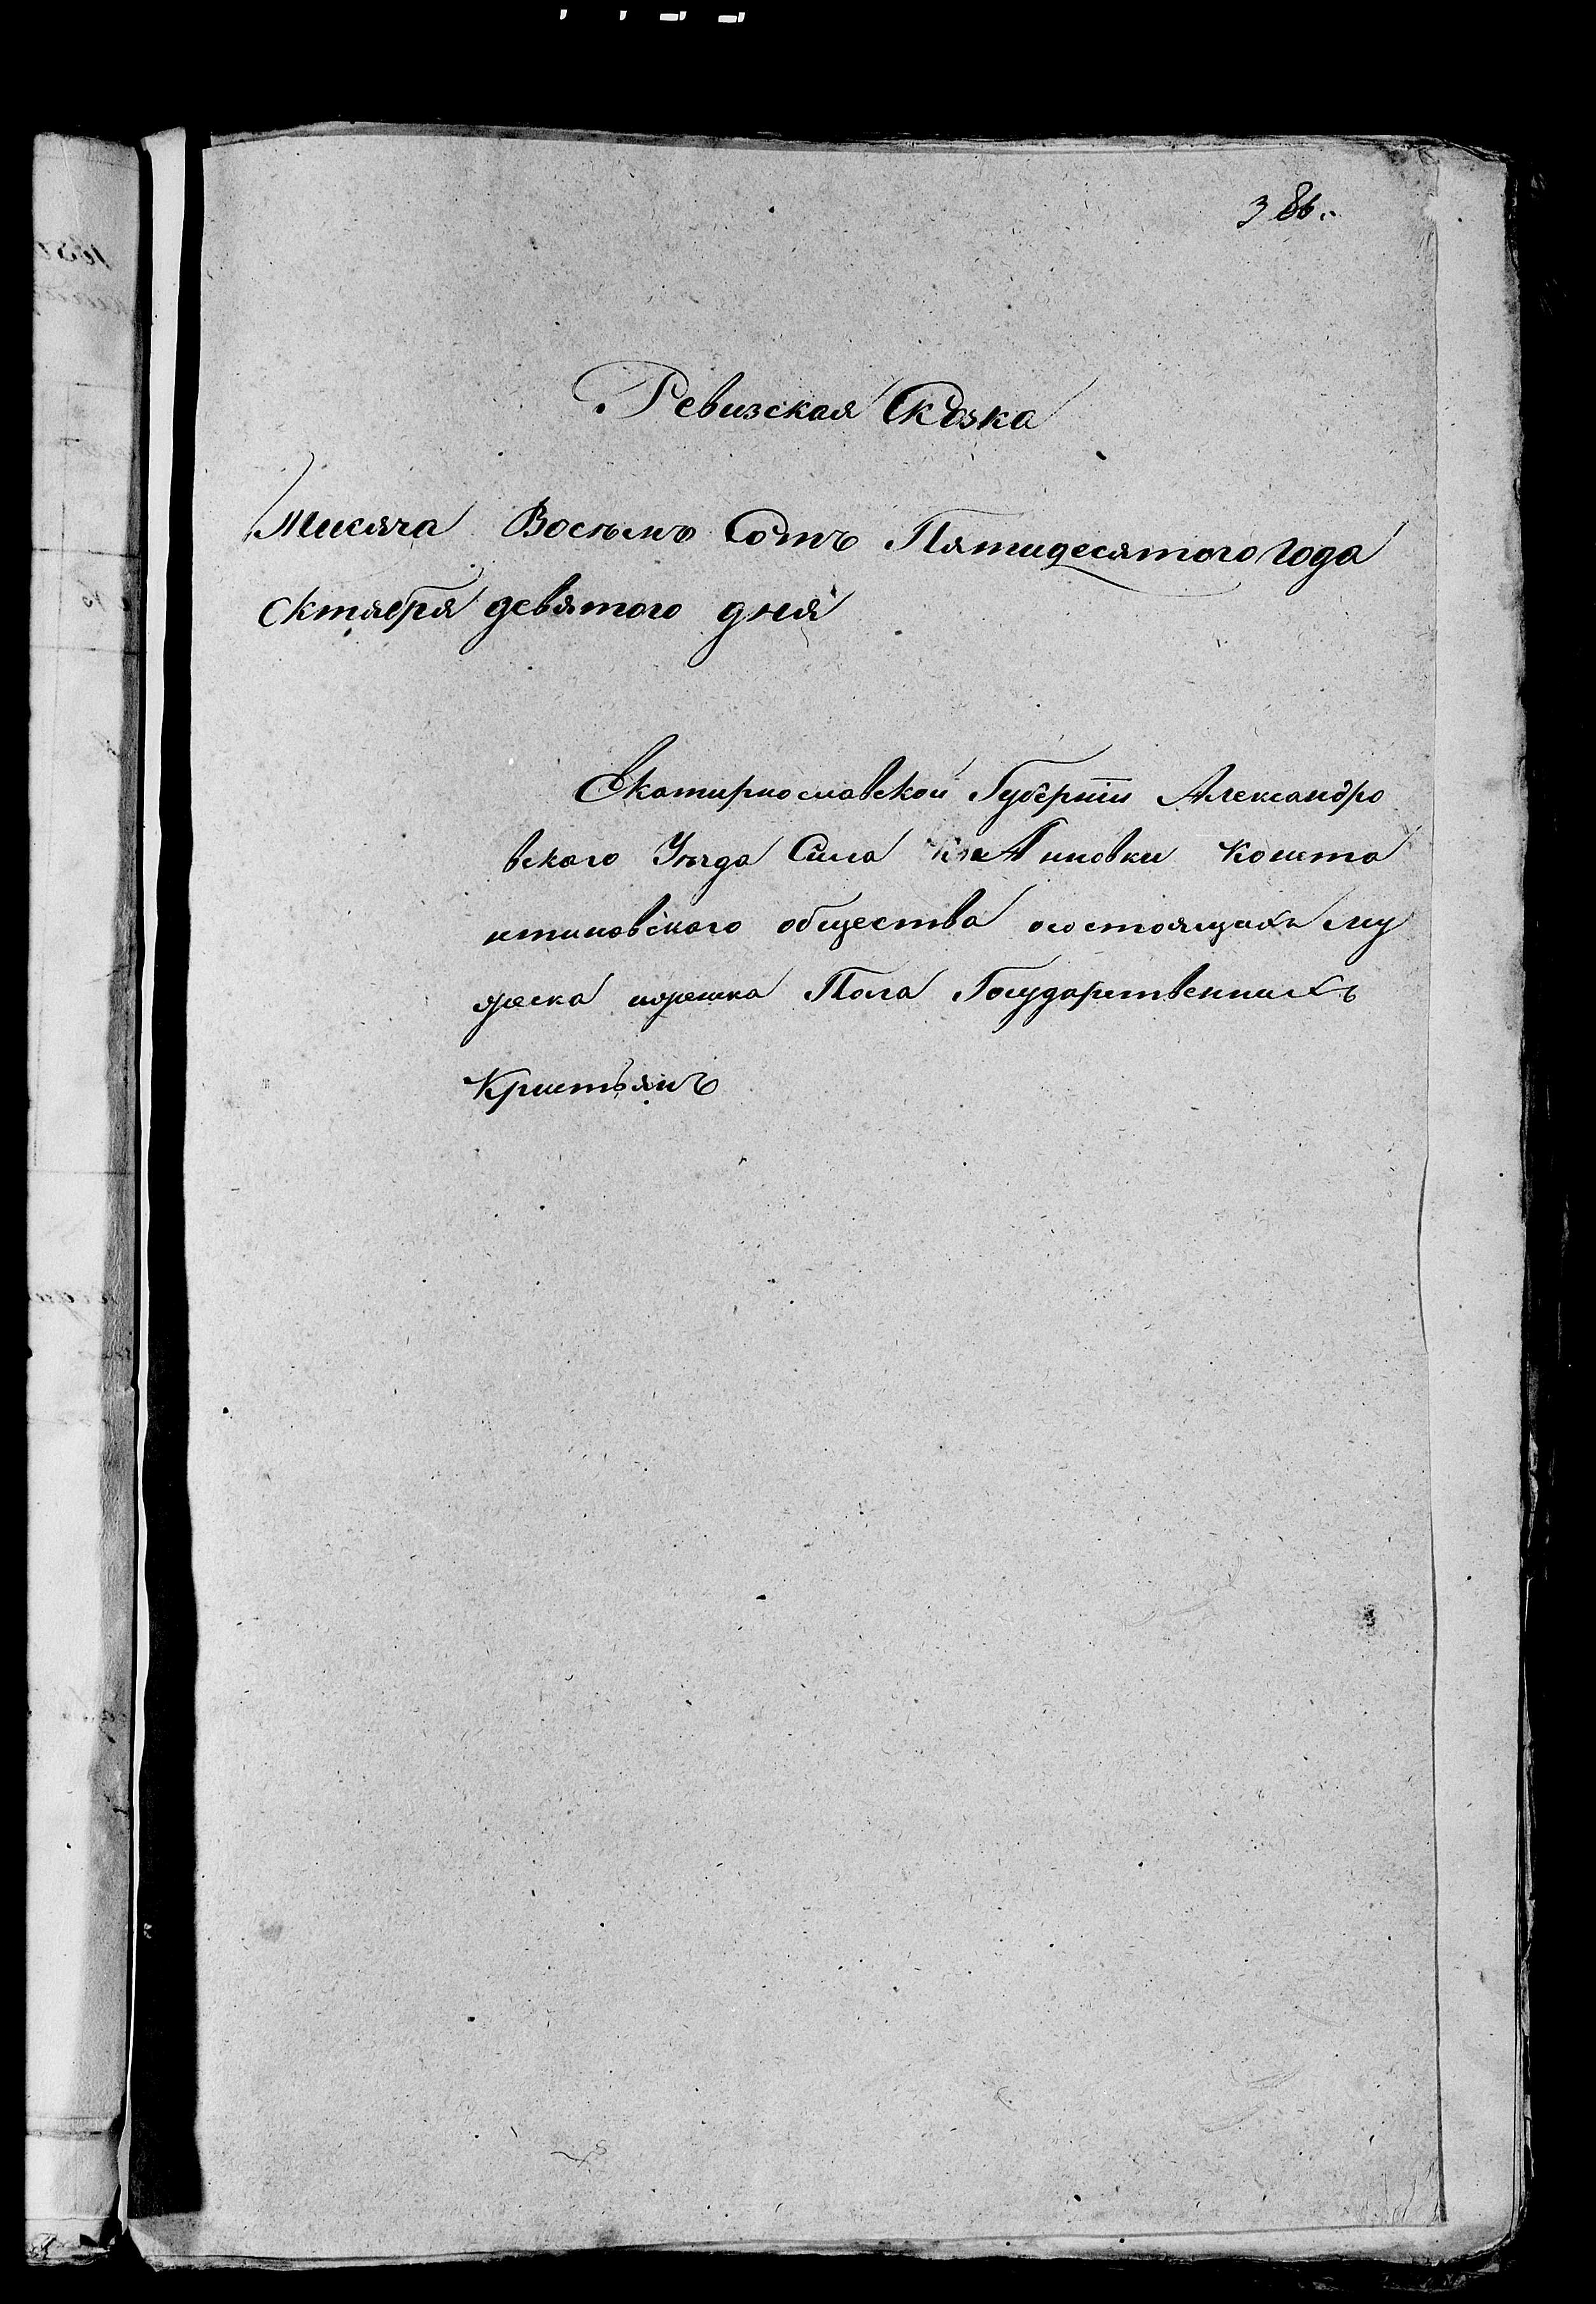 386.
Ревизская Скозка
Тисяча Восъмъ Сотъ Пятидесятого Года
Октября девятого дня
Екатирнославской Губерніи Александро
вского Уезда Сила Кон
нтиновского общества осостоящихъ му
жеска иженска Пола Государственнихъ
Кристьянъ